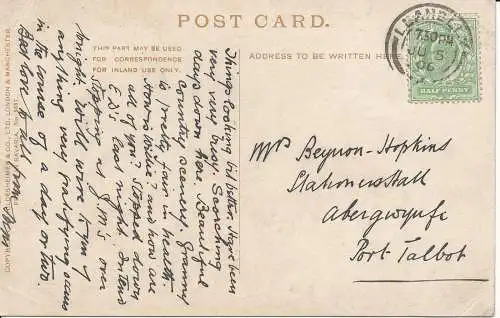 POST CARD.
THIS PART MAY BE USED
FOR CORRESPONDENCE
FOR INLAND USE ONLY.
ADDRESS TO BE WRITTEN HERE
7 30 PM
JU 5
06
HALF PENNY
Things looking bit better. Have been
very very busy. Scorching
days down here. Beautiful
Country scenery. Granny
is pretty fair in health.
How's Willie? and how are
all of you. Stopped down
E.V. last night. Intend
stopping at Jim's over
tonight. Will write if
anything very particular occurs
in the course of a day or two.
Best love to all from
Mrs Beynon-Hopkins
Stationers Hall
Abergwynfi
Port Talbot
LONDON & MANCHESTER.